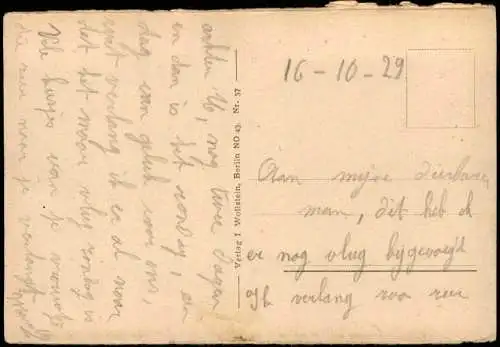 16-10-29
Aan mijne dierbaren
man, dit heb ik
er nog vlug bijgevoegd
Ik verlang voor zeer
Verlag I Wollstein, Berlin NO 43. Nr. 57
nog twee dagen
en dan is het zondag, een
dag van geluk voor ons,
wat verlang ik er al naar
dat het maar vlug zondag is
Vele kusjes van je vrouwtje
die zeer naar je verlangt